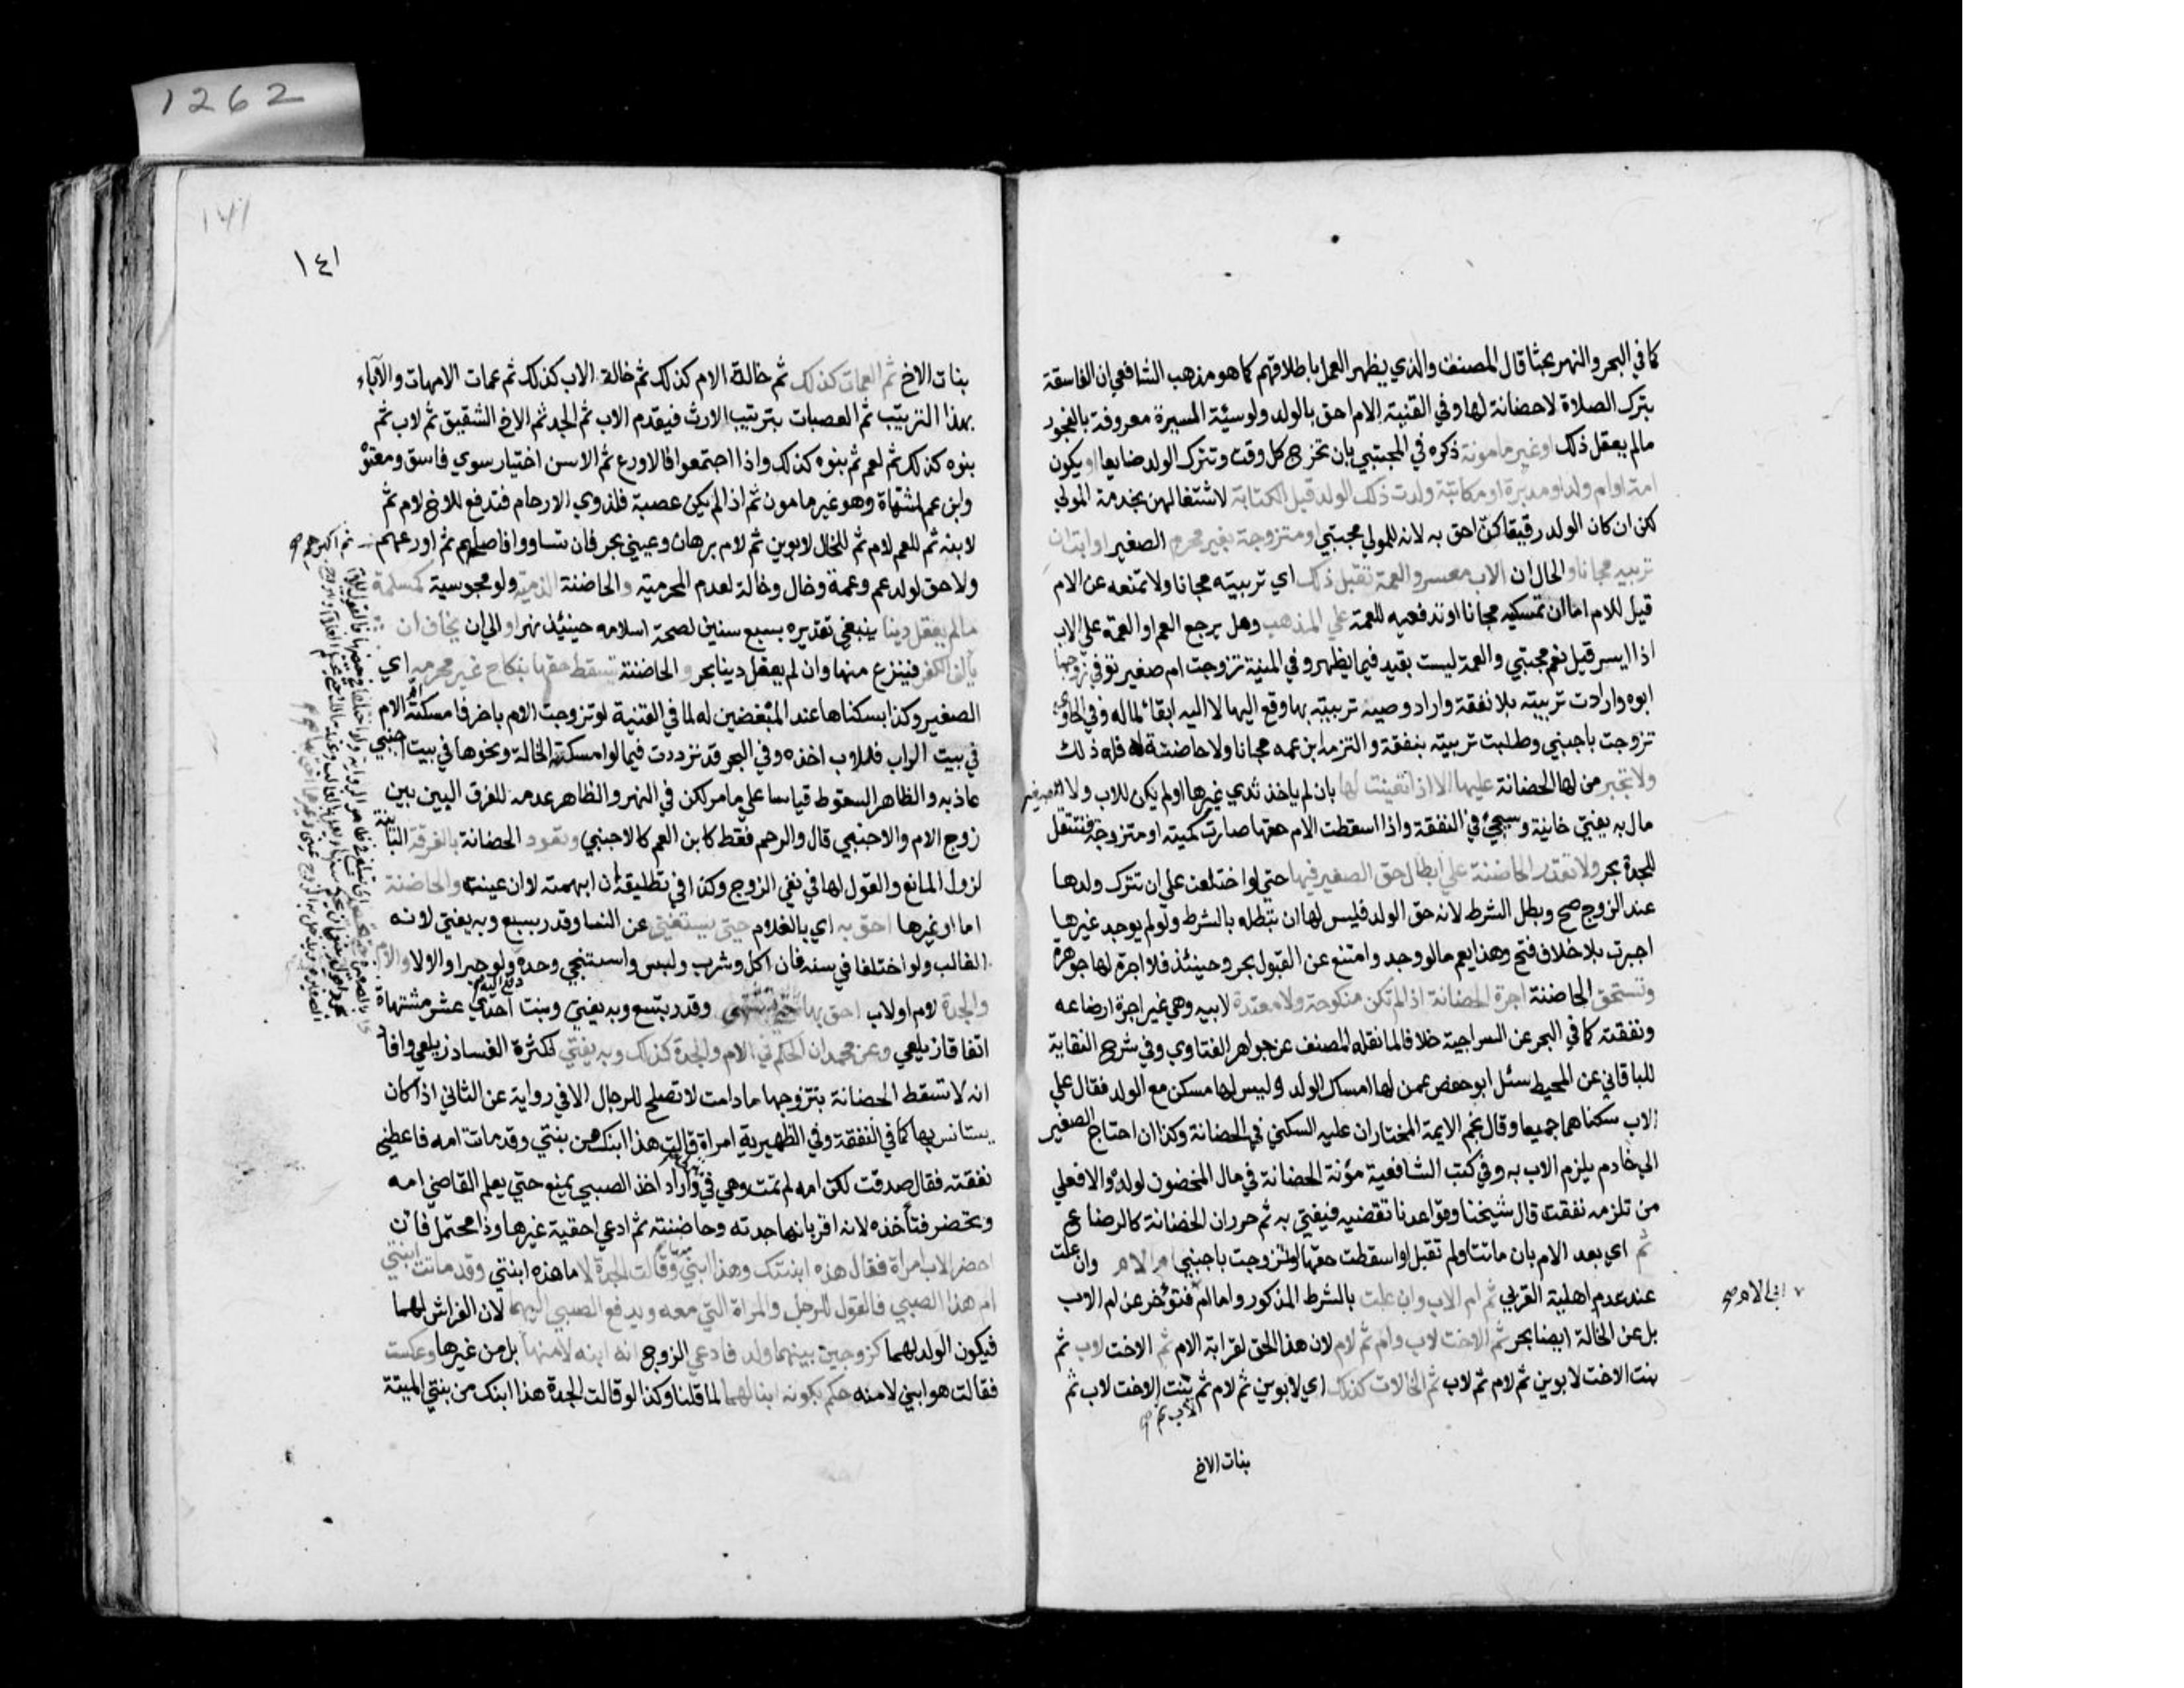 1262
كما في البحر والنهر بحثا قال المصنف والذي يظهر العمل باطلاقهم كما هو مذهب الشافعي ان الفاسقة
بترك الصلاة لا حضانة لها وفي القنية الام احق بالولد ولو سيئة السيرة معروفة بالفجور
مالم يعقل ذلك او غير مامونة ذكره في المجتبي بان تخرج كل وقت وتترك الولد ضايعا او يكون
امة او ام ولد او مدبرة او مكاتبة ولدت ذلك الولد قبل الكتابة لاشتغالهن بخدمة المولي
لكن ان كان الولد رقيقا كن احق به لانه للمولي مجتبي او متزوجة بغير محرم الصغير او ابت ان
تربيه مجانا والحال ان الاب معسر والعمة تقبل ذلك اي تربيته مجانا ولا تمنعه عن الام
قيل للام اما ان تمسكيه مجانا او تدفعيه للعمة علي المذهب وهل يرجع العم او العمة علي الاب
اذا ايسر قيل نعم مجتبي والعمة ليست بقيد فيما يظهر وفي المنية تزوجت ام صغير توفي زوجها
ابوه وارادت تربيته بلا نفقة واراد وصيه تربيته بها وقع اليها لا اليه ابقائ لماله وفي الحاوي
تزوجت باجنبي وطلبت تربيته بنفقة والتزمه ابن عمه مجانا ولا حاضنة له فله ذلك
ولا تجبر من لها الحضانة عليها الا اذا تعينت لها بان لم ياخذ ثدي غيرها او لم يكن للاب ولا للصغير
مال به يفتي خانية وسيجئ في النفقة واذا اسقطت الام حقها صارت كميتة او متزوجة فتنتقل
للجدة بحر ولا تقدر الحاضنة علي ابطال حق الصغير فيها حتي لو اختلعت علي ان تترك ولدها
عند الزوج صح وبطل الشرط لانه حق الولد فليس لها ان تبطله بالشرط ولو لم يوجد غيرها
اجبرت بلا خلاف فتح وهذا يعم مالو وجد وامتنع عن القبول بحر وحينئذ فلا اجرة لها جوهرة
وتستحق الحاضنة اجرة الحضانة اذا لم تكن منكوحة ولا معتدة لابيه وهي غير اجرة ارضاعه
ونفقته كما في البحر عن السراجية خلافا لما نقله المصنف عن جواهر الفتاوي وفي شرح النقاية
للباقاني عن المحيط سئل ابو حفص عمن لها امساك الولد وليس لها مسكن مع الولد فقال علي
الاب سكناهما جميعا وقال نجم الايمة المختار ان عليه السكني في الحضانة وكذا ان احتاج الصغير
الي خادم يلزم الاب به وفي كتب الشافعية مؤنة الحضانة في مال المحضون لو له والا فعلي
من تلزمه نفقته قال شيخنا وقواعدنا تقتضيه فيفتي به ثم حرر ان الحضانة كالرضاع
ثم اي بعد الام بان ماتت او لم تقبل او اسقطت حقها او تزوجت باجنبي ام الام وان علت
عند عدم اهلية القربي ثم ام الاب وان علت بالشرط المذكور واما ام فتؤخر عن ام الاب
ابي الام صح
بل عن الخالة ايضا بحر ثم الاخت لاب وام ثم لام لان هذا الحق لقرابة الام ثم الاخت لاب ثم
بنت الاخت لابوين ثم لام ثم لاب ثم الخالات كذلك اي لابوين ثم لام ثم بنت الاخت لاب ثم
لاب ثم صح
بنات الاخ
١٤١
بنات الاخ ثم العمات كذلك ثم خالة الام كذلك ثم خالة الاب كذلك ثم عمات الامهات والآباء
بهذا الترتيب ثم العصبات بترتيب الارث فيقدم الاب ثم الجد ثم الاخ الشقيق ثم لاب ثم
بنوه كذلك ثم لعم ثم بنوه كذلك واذا اجتمعوا فالاورع ثم الاسن اختيار سوي فاسق ومعتوه
وابن عم لمشتهاة وهو غير مامون ثم اذا لم يكن عصبة فلذوي الارحام فتدفع للاخ لام ثم
لابنه ثم للعم لام ثم للخال لابوين ثم لام برهان وعيني بحر فان تساووا فاصلحهم ثم اورعهم
ثم اكبرهم صح
ولا حق لولد عم وعمة وخال وخالة لعدم المحرمية والحاضنة الذمية ولو مجوسية كمسلمة
مالم يعقل دينا ينبغي تقديره بسبع سنين لصحة اسلامه حينئذ نهر او الي ان يخاف ان
يالف الكفر فينزع منها وان لم يعقل دينا بحر والحاضنة يسقط حقها بنكاح غير محرمه اي
الصغير وكذا بسكناها عند المبغضين له لما في القنية لو تزوجت الام باخر فامسكته ام الام
في بيت الراب فللاب اخذه وفي البحر قد ترددت فيما لو امسكته الخالة ونحوها في بيت اجنبي
عاذبه والظاهر السقوط قياسا علي ما مر لكن في النهر والظاهر عدمه للفرق البين بين
زوج الام والاجنبي قال والرحم فقط كابن العم كالاجنبي وتعود الحضانة بالفرقة البائنة
لزول المانع والقول لها في نفي الزوج وكذا في تطليقه ان ابهمته لا ان عينته والحاضنة
اما او غيرها احق به اي بالغلام حتي يستغني عن النسا وقدر بسبع وبه يفتي لانه
الغالب ولو اختلفا في سنه فان اكل وشرب ولبس واستنجي وحده دفع اليه ولو جبرا والا لا والام
والجدة لام او لاب احق بها حتي تشتهي وقدر بتسع وبه يفتي وبنت احدي عشر مشتهاة
اتفاقا زيلعي وعن محمد ان الحكم في الام والجدة كذلك وبه يفتي لكثرة الفساد زيلعي وافاد
انه لا تسقط الحضانة بتزوجها ما دامت لا تصلح للرجال الا في رواية عن الثاني اذا كان
يستانس بها كما في النفقة وفي الظهيرية امراة قالت هذا ابنك من بنتي وقد ماتت امه فاعطني
نفقته فقال صدقت لكن امه لم تمت وهي في منزلي واراد اخذ الصبي يمنع حتي يعلم القاضي امه
وتحضر فتأخذه لانه اقر بانها جدته وحاضنته ثم ادعي احقية غيرها وذا محتمل فان
احضر الاب امراة فقال هذه ابنتك وهذا ابني منها وقالت الجدة لا ما هذه ابنتي وقد ماتت ابنتي
ام هذا الصبي فالقول للرجل والمراة التي معه ويدفع الصبي اليهما لان الفراش لهما
فيكون الولد لهما كزوجين بينهما ولد فادعي الزوج انه ابنه لا منها بل من غيرها وعكست
فقالت هو ابني لا منه حكم بكونه ابنا لهما لما قلنا وكذا لو قالت الجدة هذا ابنك من بنتي الميتة